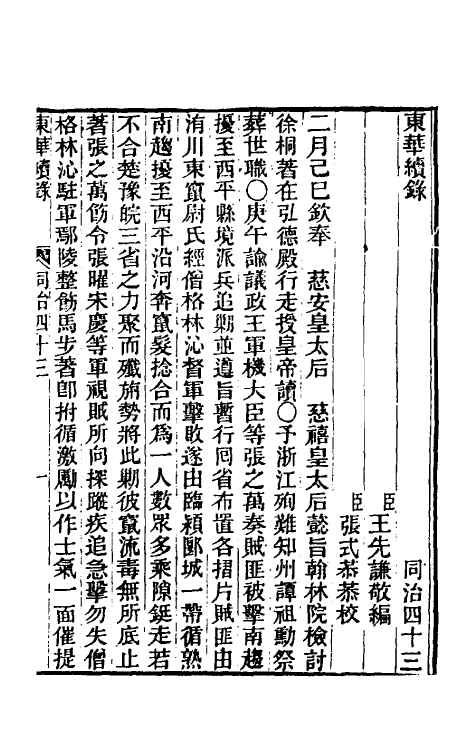 東華續錄　同治四十三
臣王先謙敬編
臣張式恭恭校
二月己巳欽奉　慈安皇太后　慈禧皇太后懿旨翰林院檢討
徐桐著在弘德殿行走授皇帝讀〇予浙江殉難知州譚祖勳祭
葬世職〇庚午諭議政王軍機大臣等張之萬奏賊匪被擊南趨
擾至西平縣境派兵追勦並遵旨暫行囘省布置各摺片賊匪由
洧川東竄尉氏經僧格林沁督軍擊敗遂由臨潁郾城一帶循熟
南趨擾至西平沿河奔竄髮捻合而爲一人數眾多乘隙鋌走若
不合楚豫皖三省之力聚而殲旃勢將此勦彼竄流毒無所底止
著張之萬飭令張曜宋慶等軍視賊所向探蹤疾追急擊勿失僧
格林沁駐軍鄢陵整飭馬步著卽拊循激勵以作士氣一面催提
東華續錄　同治四十三　一